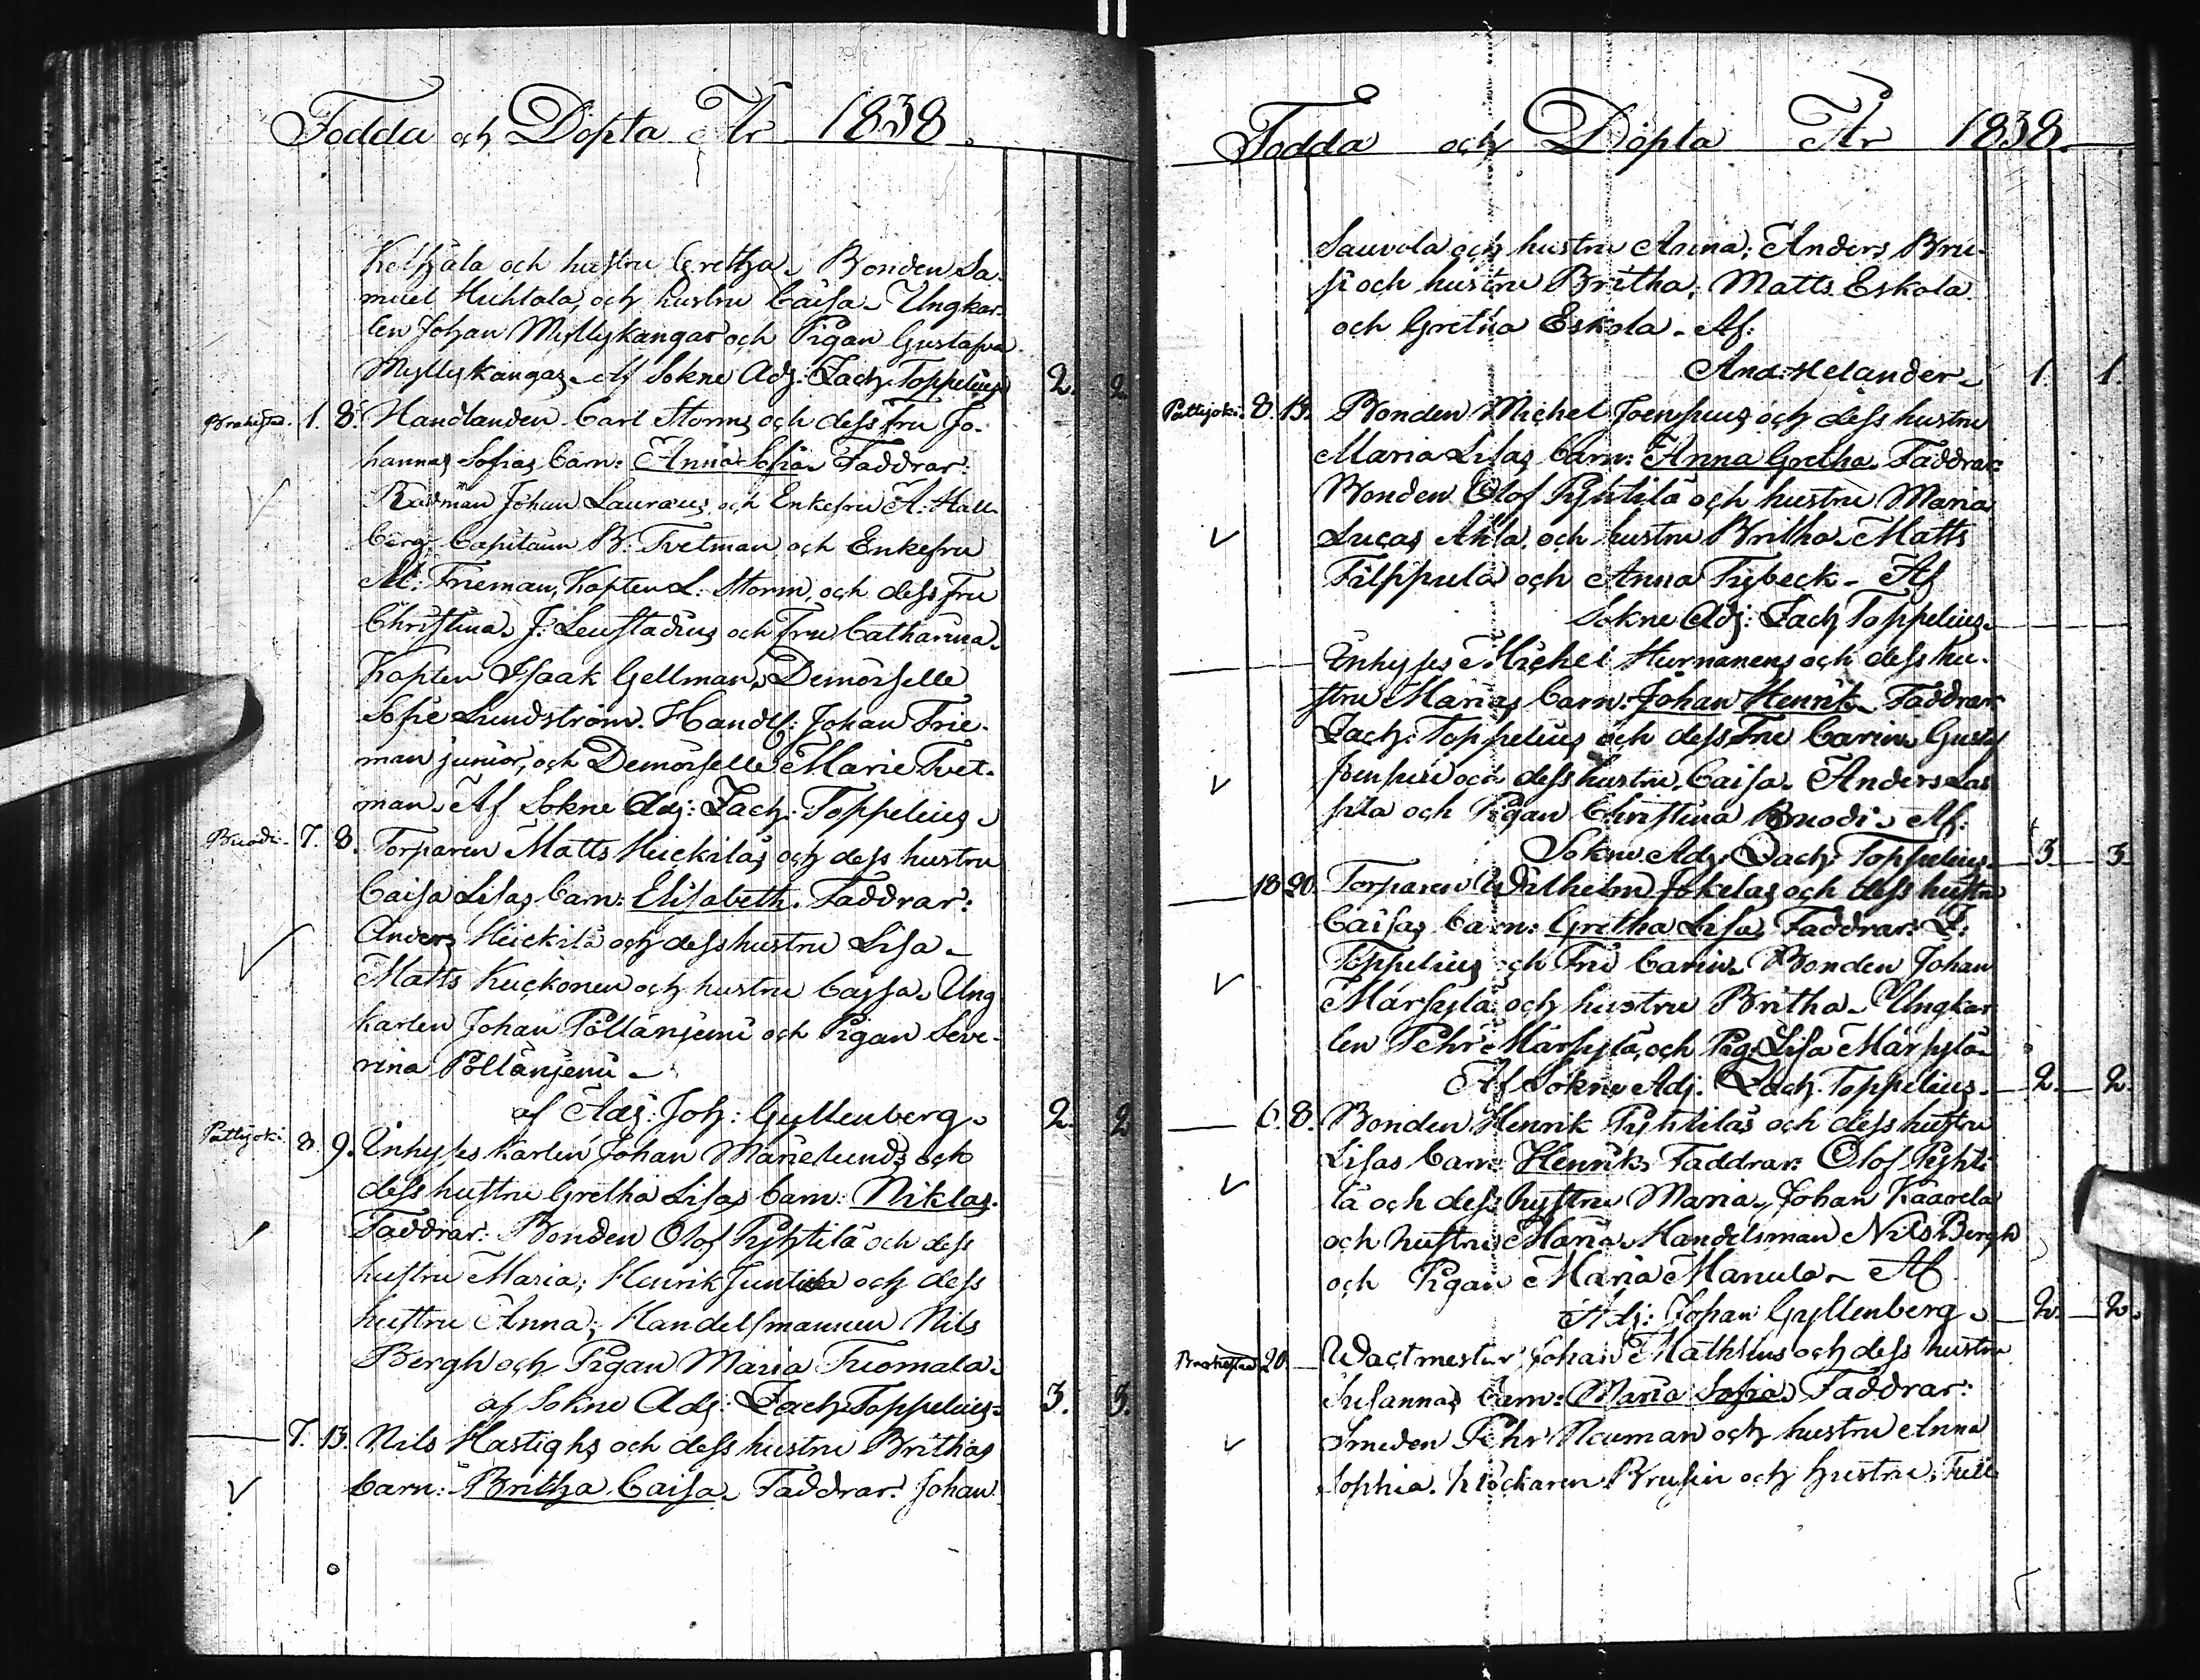 Födda och Döpta År 1838.
och hustru Gretha. Bonden Sa-
muel Huhtala, och hustru Caisa. Ungkar-
len Johan Myllykangas och Pigan Gustafva
Myllykangas. Af Sokne Adj: Zach: Toppelius 2. 2
Brahestad. 1. 8. Handlanden Carl Storms och dess fru Jo-
hannas Sofias barn: Anna Sofia. Faddrar:
Rådman Johan Lauræus, och Enkefru A. Hall-
berg. Capitain B. Tvetman och Enkefru
M: Frieman, Kapten L. Storm, och dess fru
Christina. J: Leufstadius och Fru Catharina.
Kapten Isaak Gellman, Demoiselle
Sofie Lundström. Handl: Johan Frie-
man junior, och Demoiselle Marie Tvet-
man. Af Sokne Adj: Zach: Toppelius
Bruodi. 7. 8. Torparen Matts Heickiläs och dess hustru
Caisa Lisas barn: Elisabeth. Faddrar:
Anders Heickilä och dess hustru Lisa.
Matts Kuckonen och hustru Cajsa. Ung
karlen Johan Pöllänjemi och Pigan Seve-
rina Pöllänjemi.
af Adj: Joh: Gyllenberg. 2. 2
Pattijoki. 8. 9. Inhyses Karlen Johan Marielunds och
dess hustru Gretha Lisas barn: Niklas.
Faddrar: Bonden Olof Pyhtilä och dess
hustru Maria; Henrik Juntila och dess
hustru Anna; Handelsmannen Nils
Bergh och Pigan Maria Tuomala.
af Sokne Adj: Zach: Toppelius. 3. 3.
7. 13. Nils Hastighs och dess hustru Brithas
barn: Britha Caisa. Faddrar: Johan
Födda och Döpta År 1838.
Sauvola och hustru Anna; Anders Bru-
si och hustru Britha; Matts Eskola
och Gretha Eskola. Af:
And: Helander. 1. 1.
Pattijoki. 8. 13. Bonden Michel Joensuus och dess hustru
Maria Lisas barn: Anna Gretha. Faddrar:
Bonden Olof Pyhtilä och hustru Maria
Lucas Ahla och hustru Britha. Matts
Filppula och Anna Fybeck. Af
Sokne Adj: Zach Toppelius.
Inhyses Michel Hurnanens och dess hu-
stru Marias barn: Johan Henrik. Faddrar:
Zach: Toppelius och dess Fru Carin. Gustaf
Joensuu och dess hustru Caisa. Anders Las
sila och Pigan Christina Bruodi. Af:
Sokne Adj. Zach: Toppelius. 3. 3
18 20. Torparen Wilhelm Jokelas och dess hustru
Caisas barn: Gretha Lisa. Faddrar: Z:
Toppelius och Fru Carin. Bonden Johan
Märsylä och hustru Britha. Ungkar
len Pehr Märsylä, och Pig: Lisa Märsylä.
Af Sokne Adj. Zach. Toppelius. 2. 2.
6. 8. Bonden Henrik Pyhtiläs och dess hustru
Lisas barn: Henrik. Faddrar: Olof Pyhti
lä och dess hustru Maria, Johan Kaarela
och hustru Maria. Handelsman Nils Bergh
och Pigan Maria Manula. Af
Adj: Johan Gyllenberg. 2. 2.
Brahestad 20. Wactmestar Johan Mathsius och dess hustru
Susannas barn: Maria Sofia. Faddrar:
Smeden Pehr Neuman och hustru Anna
Sophia. Klockaren Brusin och hustru; Full